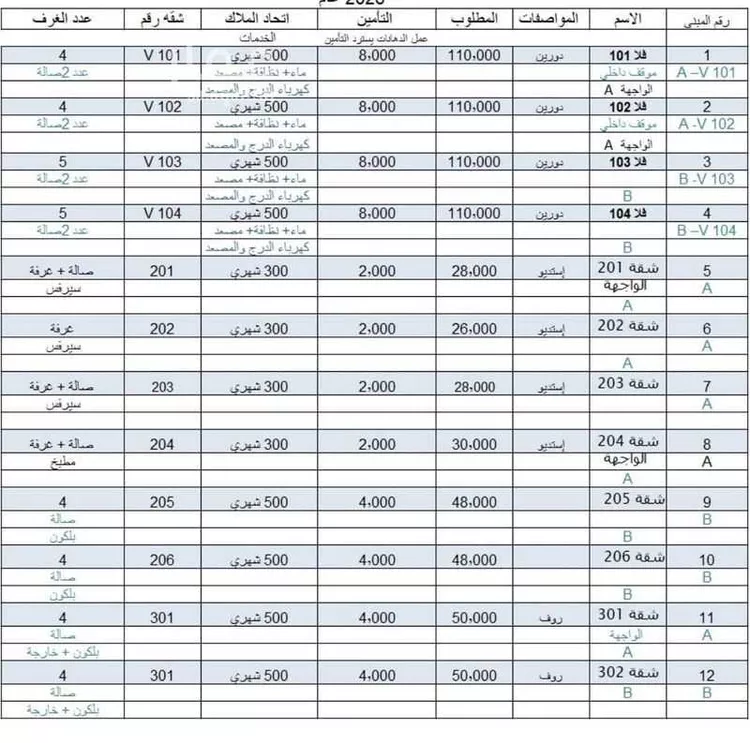 2026 عام
رقم المبنى الاسم المواصفات المطلوب التأمين اتحاد الملاك شقه رقم عدد الغرف
عمل الدهانات يسترد التأمين الخدمات
1 فلا 101 دورين 110,000 8,000 500 شهري V 101 4
A –V 101 موقف داخلي ماء+ نظافة+ مصعد عدد 2صالة
الواجهة A كهرباء الدرج والمصعد
2 فلا 102 دورين 110,000 8,000 500 شهري V 102 4
A -V 102 موقف داخلي ماء+ نظافة+ مصعد عدد 2صالة
الواجهة A كهرباء الدرج والمصعد
3 فلا 103 دورين 110,000 8,000 500 شهري V 103 5
B -V 103 ماء+ نظافة+ مصعد عدد 2صالة
B كهرباء الدرج والمصعد
4 فلا 104 دورين 110,000 8,000 500 شهري V 104 5
B –V 104 ماء+ نظافة+ مصعد عدد 2صالة
B كهرباء الدرج والمصعد
5 شقة 201 إستديو 28,000 2,000 300 شهري 201 صالة + غرفة
A الواجهة سيرفس
A
6 شقة 202 إستديو 26,000 2,000 300 شهري 202 غرفة
A سيرفس
A
7 شقة 203 إستديو 28,000 2,000 300 شهري 203 صالة + غرفة
A سيرفس
8 شقة 204 إستديو 30,000 2,000 300 شهري 204 صالة + غرفة
A الواجهة مطبخ
A
9 شقة 205 48,000 4,000 500 شهري 205 4
B صالة
B بلكون
10 شقة 206 48,000 4,000 500 شهري 206 4
B صالة
B بلكون
11 شقة 301 روف 50,000 4,000 500 شهري 301 4
A الواجهة صالة
A بلكون + خارجة
12 شقة 302 روف 50,000 4,000 500 شهري 301 4
B B صالة
بلكون + خارجة